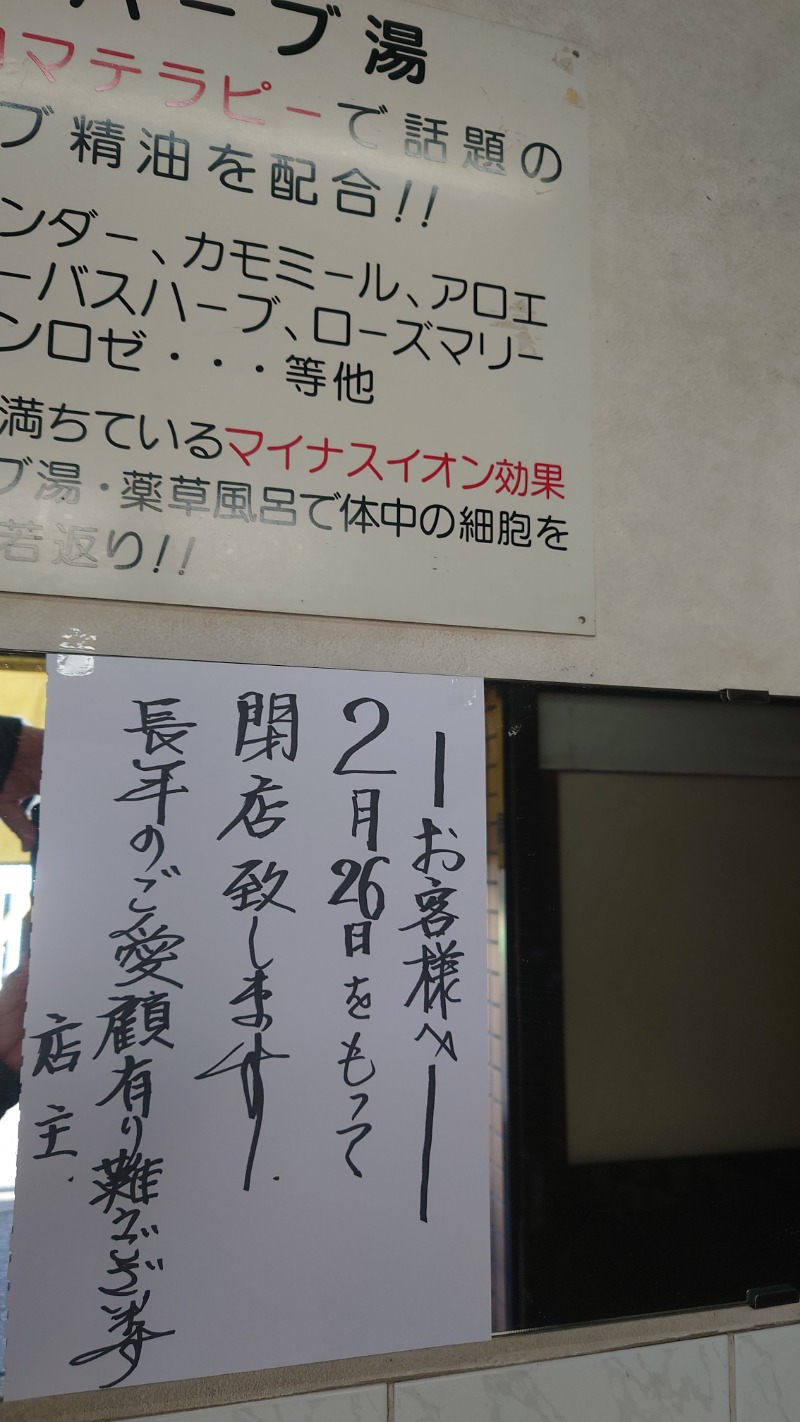 ハーブ湯
ロマテラピーで話題の
ブ精油を配合!!
ンダー、カモミール、アロエ
ーバスハーブ、ローズマリー
ンロゼ・・・等他
満ちているマイナスイオン効果
ブ湯・薬草風呂で体中の細胞を
若返り!!
ーお客様へー
2月26日をもって
閉店致します.
長年のご愛顧有り難うござい
店主.